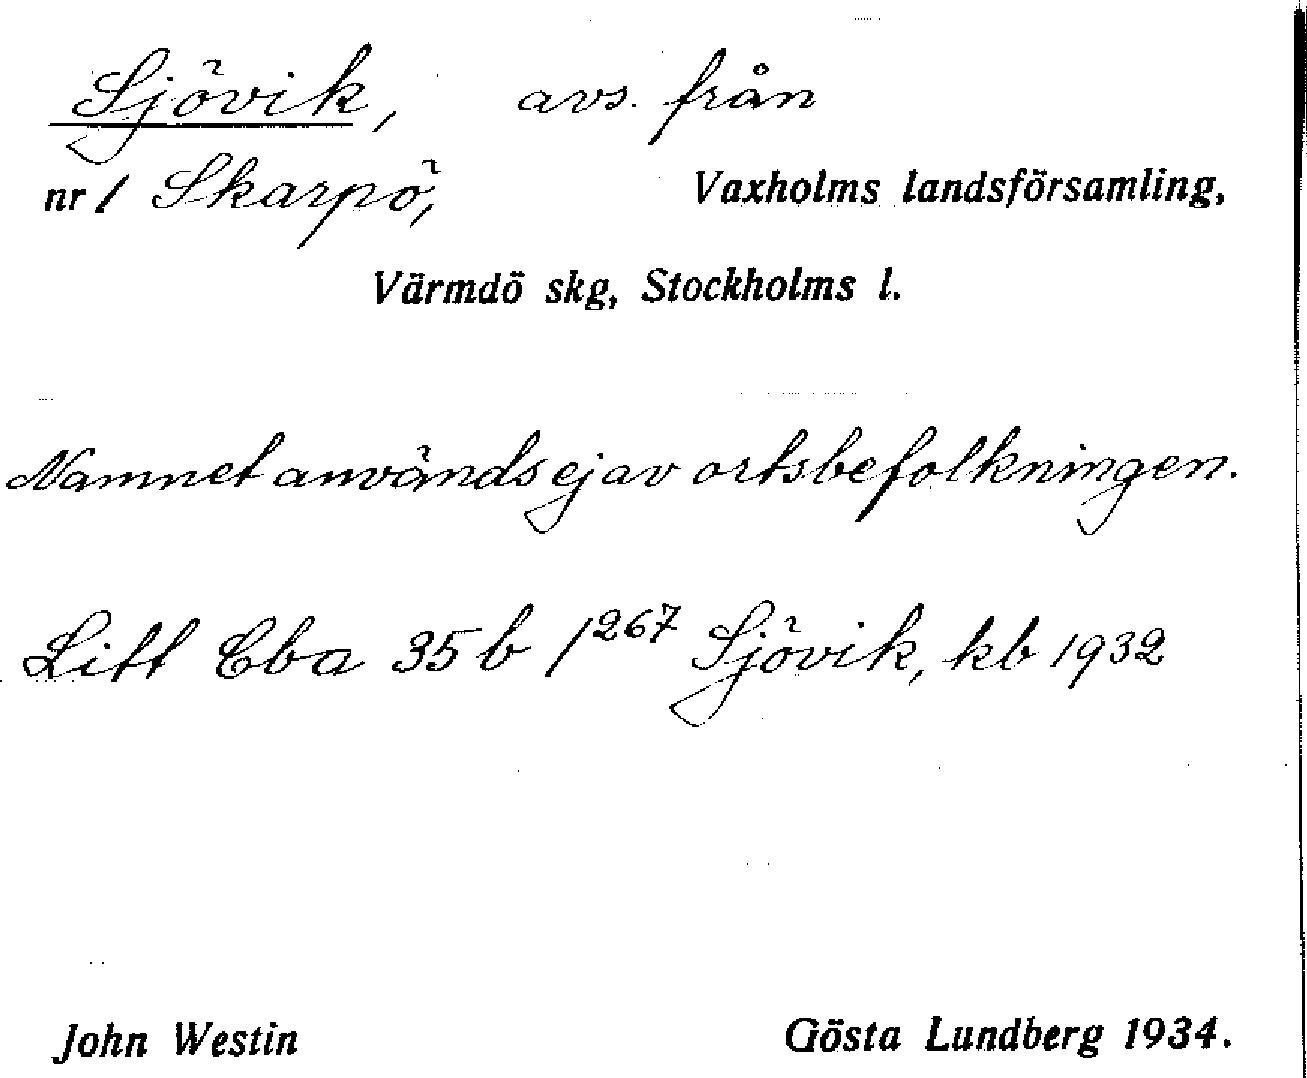 Sjövik, avs. från
nr 1 Skarpö, Vaxholms landsförsamling,
Värmdö skg, Stockholms l.
Namnet används ej av ortsbefolkningen.
Litt Cba 35 b 1267 Sjövik, kb 1932
John Westin Gösta Lundberg 1934.